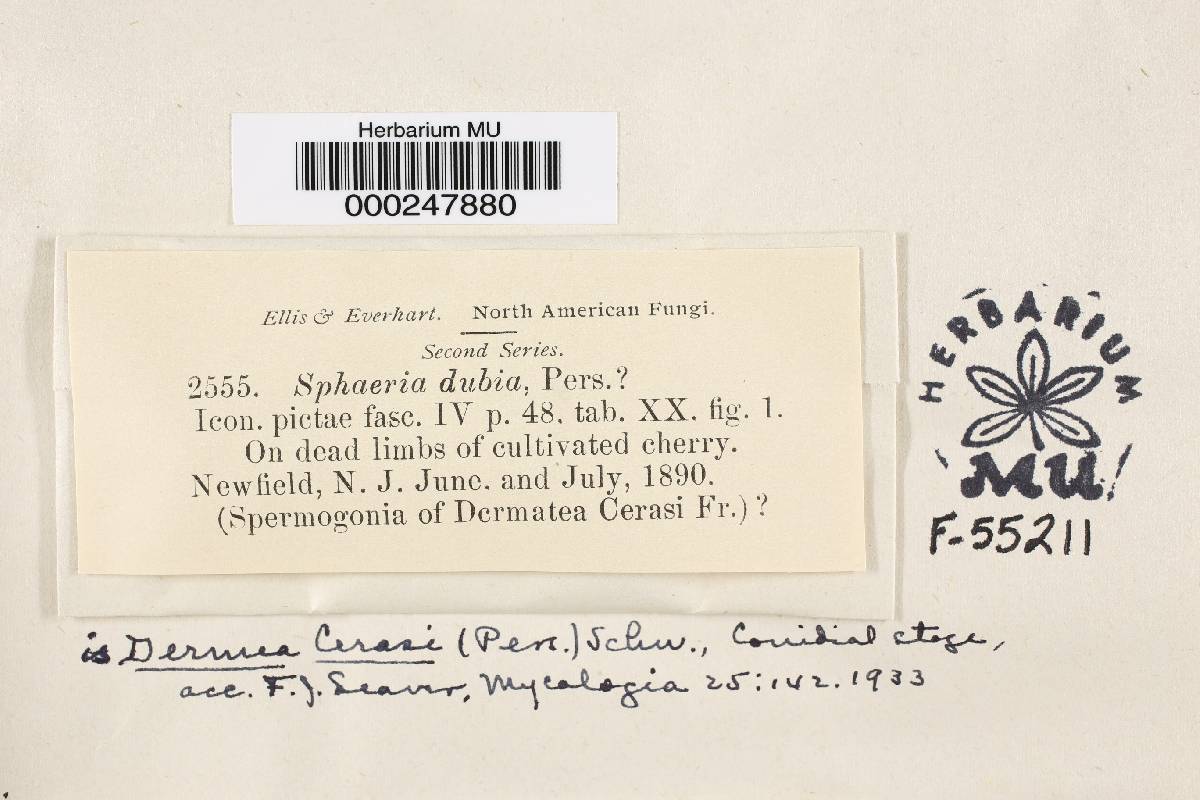 Herbarium MU
000247880
Ellis & Everhart. North American Fungi.
Second Series.
2555. Sphaeria dubia, Pers.?
Icon. pictae fasc. IV p. 48. tab. XX. fig. 1.
On dead limbs of cultivated cherry.
Newfield, N. J. June. and July, 1890.
(Spermogonia of Dermatea Cerasi Fr.) ?
HERBARIUM
MU
F-55211
is Dermea Cerasi (Pers.) Schw., Conidial stage,
acc. F. J. Seaver, Mycologia 25:142. 1933